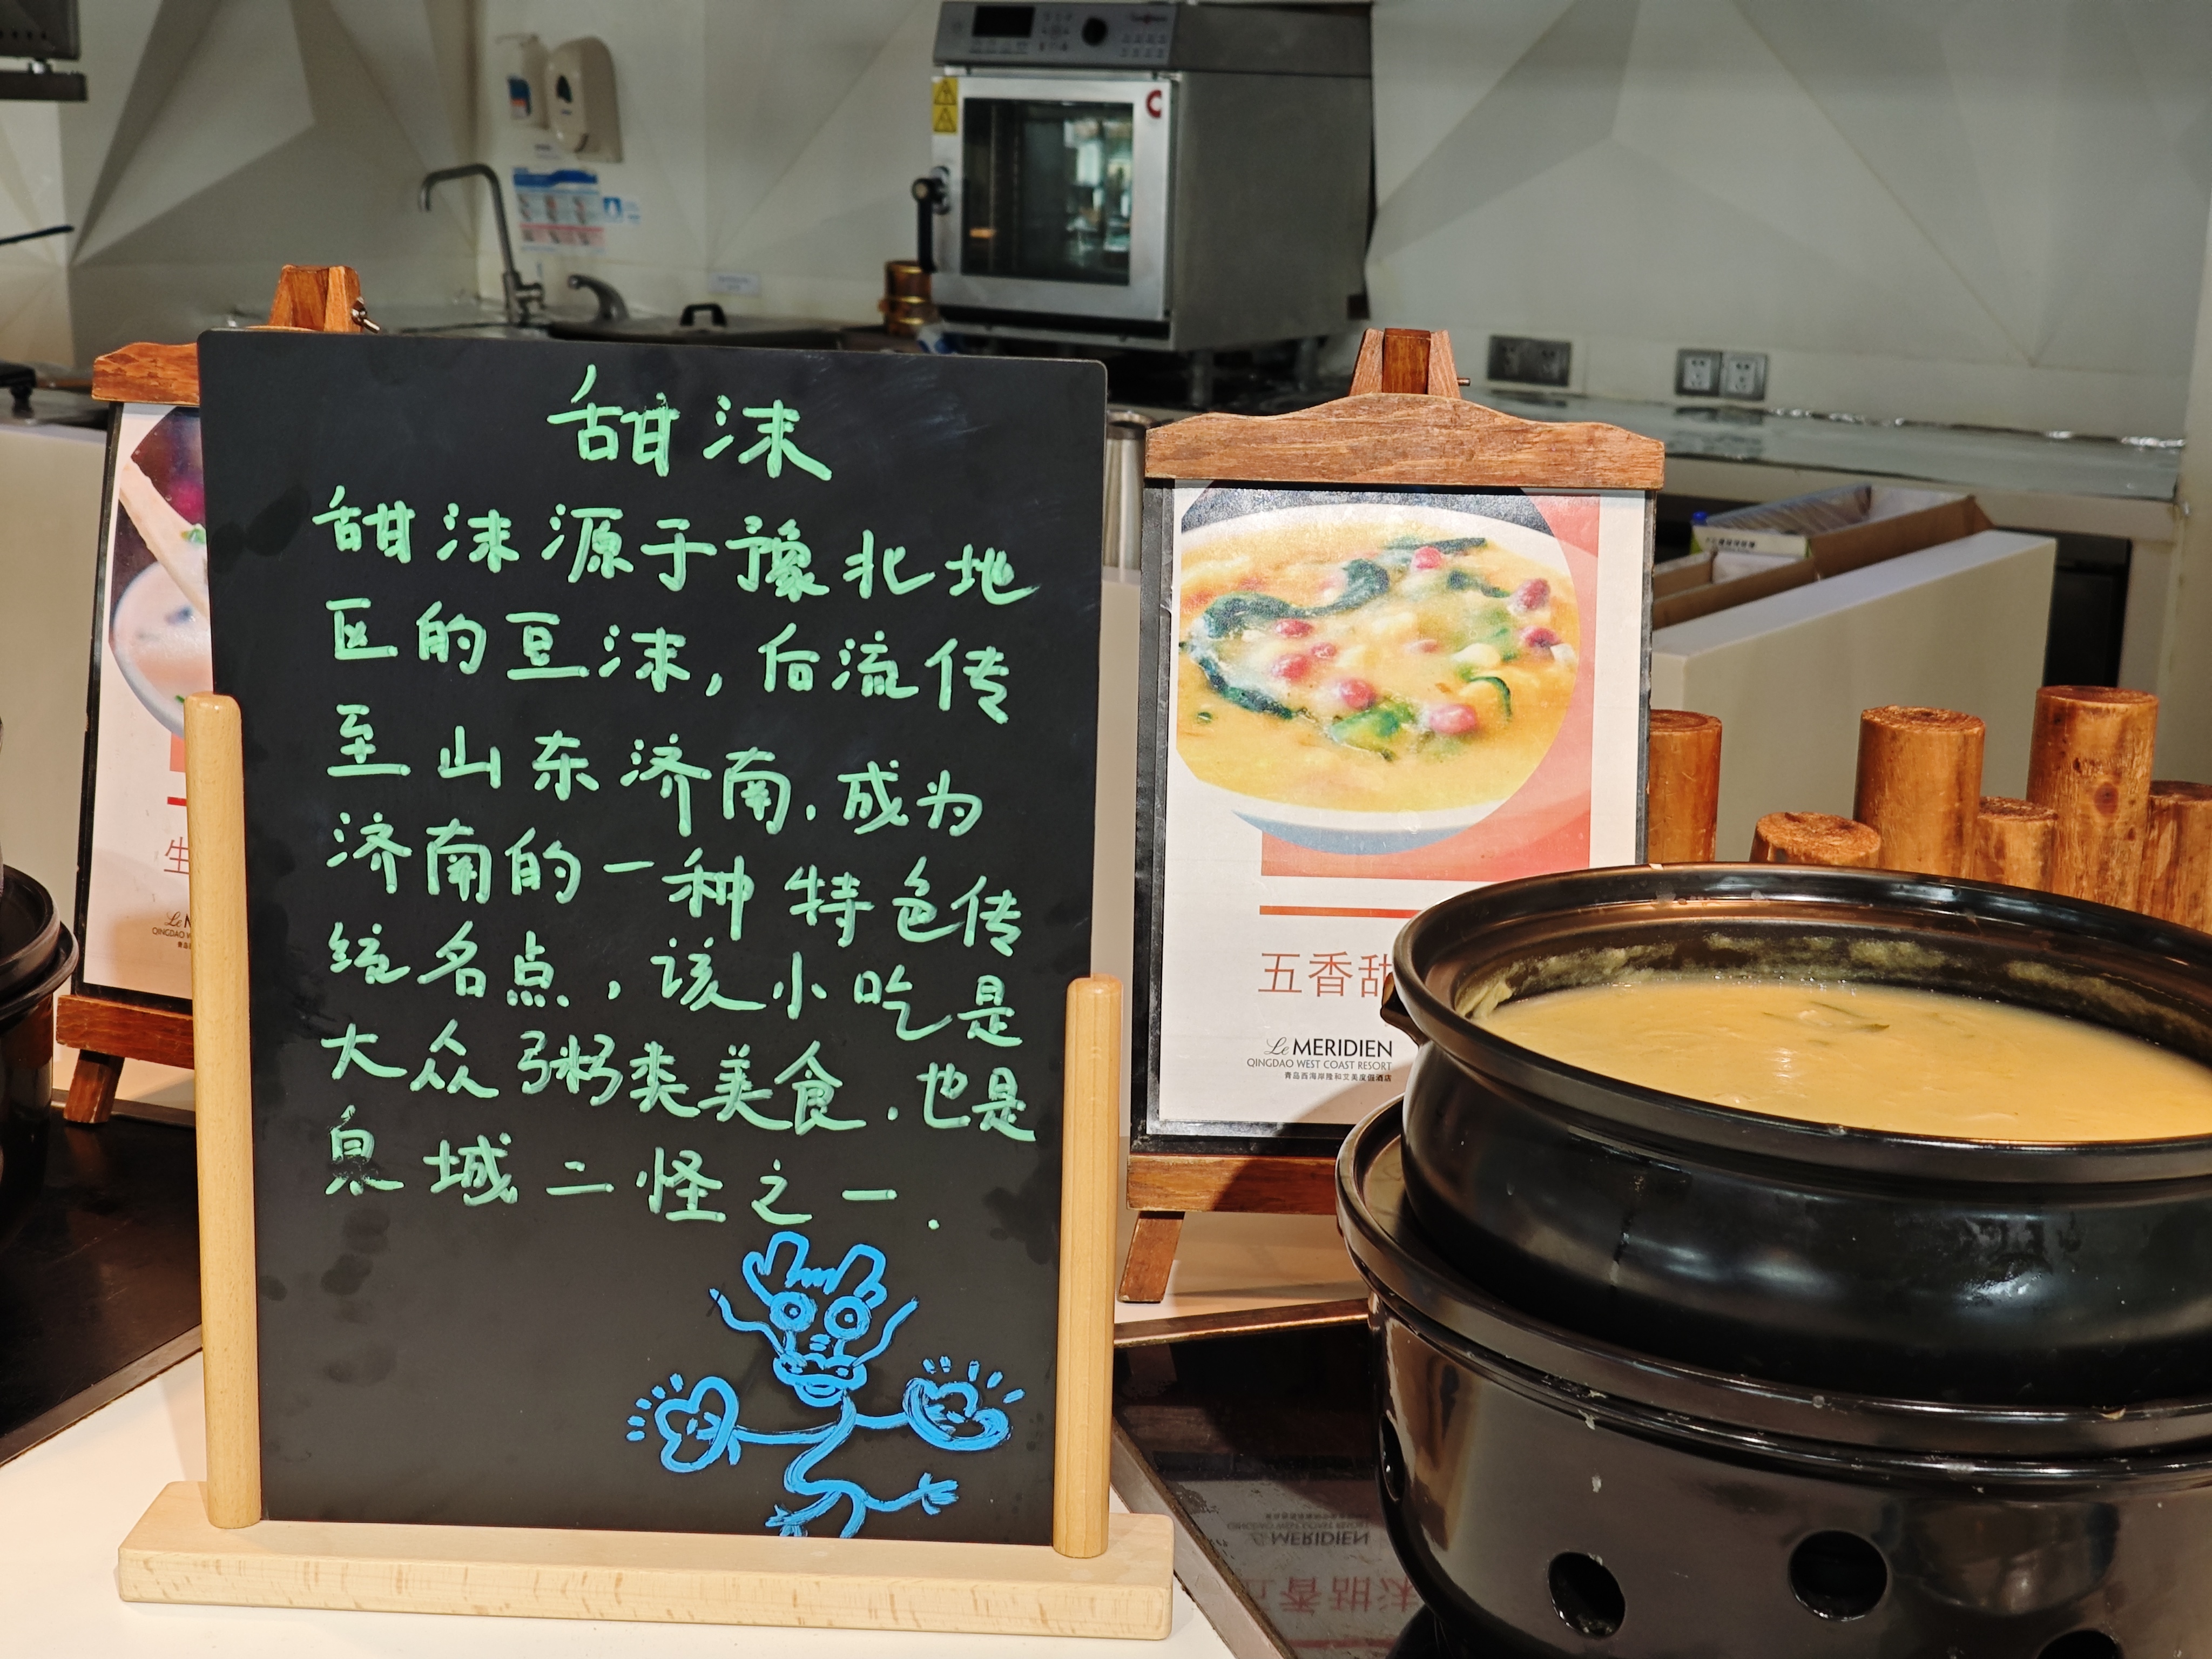 甜沫
甜沫源于豫北地
区的豆沫,后流传
至山东济南,成为
济南的一种特色传
统名点,该小吃是
大众粥类美食,也是
泉城二怪之一.
五香甜
Le MERIDIEN
QINGDAO WEST COAST RESORT
青岛西海岸隆和艾美度假酒店
生
Le M
QINGDAO W
青岛